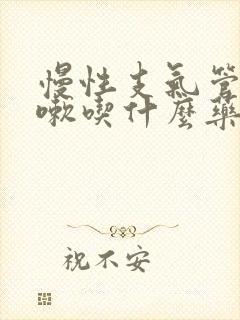 慢性支氣管
嗽喫什麼藥
祝不安